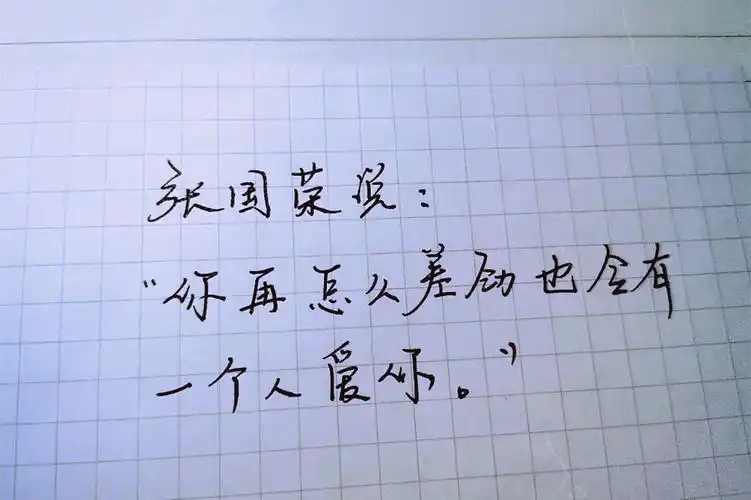 张国荣说：
“你再怎么差劲也会有
一个人爱你。”